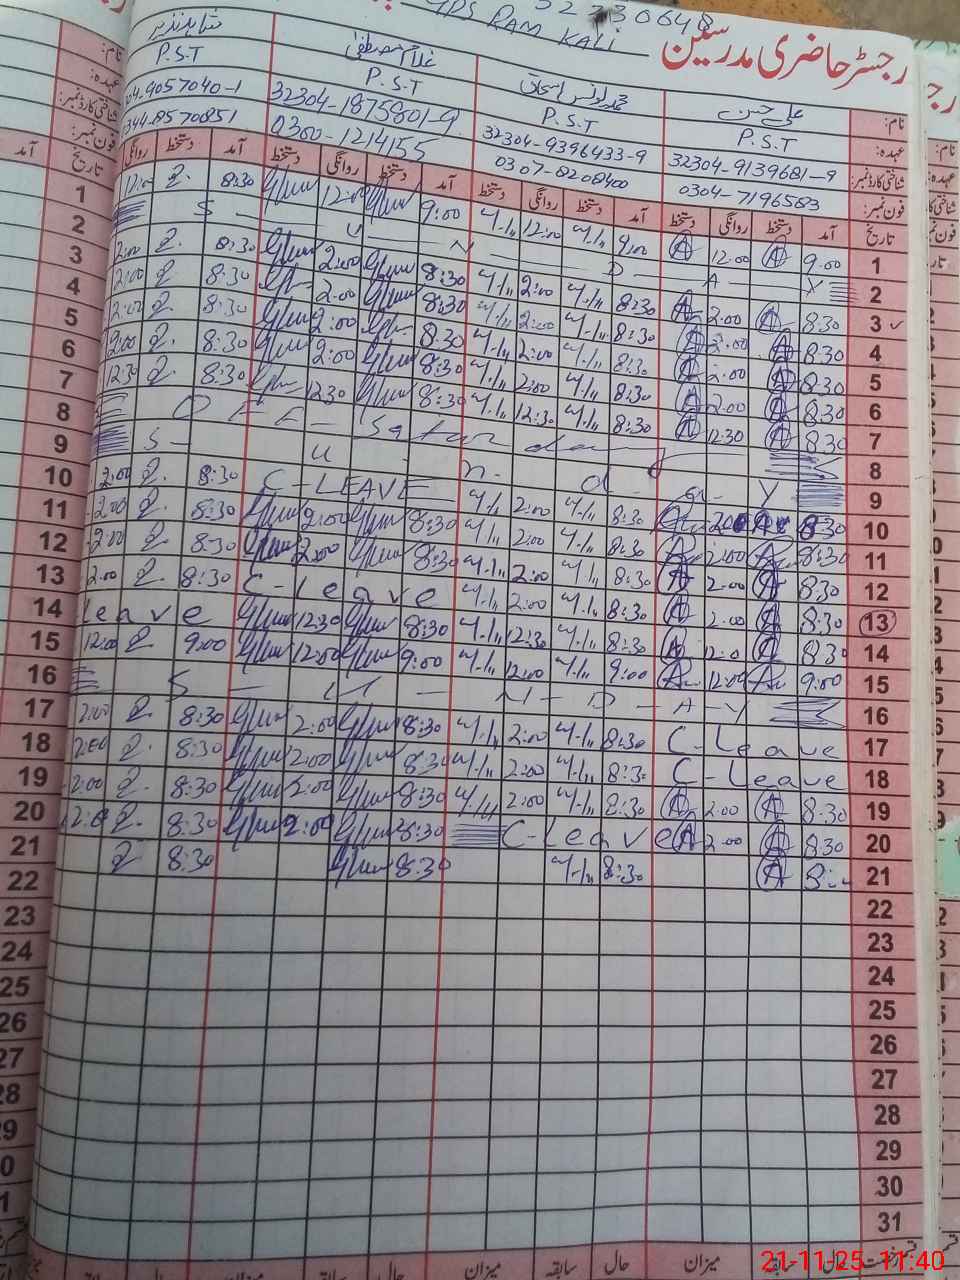 GPS RAM KALI 32230648
رجسٹر حاضری مدرسین
نام: علی حسن محمد یونس اسحاق غلام مصطفیٰ شاہد نذیر
عہدہ: P.S.T P.S.T P.S.T P.S.T
شناختی کارڈ نمبر: 32304-9139681-9 32304-9396433-9 32304-1875801-9 304-9057040-1
فون نمبر: 0304-7196583 0307-8208400 0300-1214155 344-8570851
تاریخ آمد دستخط روانگی دستخط آمد دستخط روانگی دستخط آمد دستخط روانگی دستخط آمد دستخط روانگی
1 9:00 12:00 9:00 12:00 9:00 12:00 8:30 12:00
2 S U N D A Y
3 8:30 2:00 8:30 2:00 8:30 2:00 8:30 2:00
4 8:30 2:00 8:30 2:00 8:30 2:00 8:30 2:00
5 8:30 2:00 8:30 2:00 8:30 2:00 8:30 2:00
6 8:30 2:00 8:30 2:00 8:30 2:00 8:30 2:00
7 8:30 12:30 8:30 12:30 8:30 12:30 8:30 12:30
8 OFF Saturday
9 S u n d a y
10 8:30 2:00 8:30 2:00 C-LEAVE 8:30 2:00
11 8:30 2:00 8:30 2:00 8:30 2:00 8:30 2:00
12 8:30 2:00 8:30 2:00 8:30 2:00 8:30 2:00
13 8:30 2:00 8:30 2:00 C-Leave 8:30 2:00
14 8:30 12:0 8:30 12:30 8:30 12:30 Leave
15 9:00 12:00 9:00 12:00 9:00 12:00 9:00 12:00
16 S U N D A Y
17 C-Leave 8:30 2:00 8:30 2:00 8:30 2:00
18 C-Leave 8:30 2:00 8:30 2:00 8:30 2:00
19 8:30 2:00 8:30 2:00 8:30 2:00 8:30 2:00
20 8:30 2:00 C-Leave 8:30 2:00 8:30 2:0
21 8: 8:30 8:30 8:30
22
23
24
25
26
27
28
29
30
31
قسم رخصت حال سابقہ میزان حال سابقہ میزان حال سابقہ میزان
21-11-25-11:40